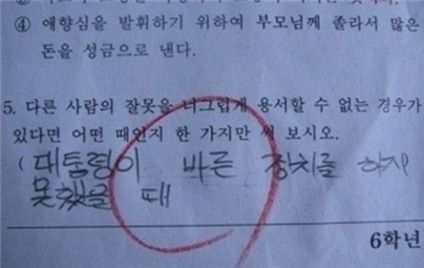 ④ 애향심을 발휘하기 위하여 부모님께 졸라서 많은
돈을 성금으로 낸다.
5. 다른 사람의 잘못을 너그럽게 용서할 수 없는 경우가
있다면 어떤 때인지 한 가지만 써 보시오.
( 대통령이 바른 정치를 하지
못했을 때
6학년